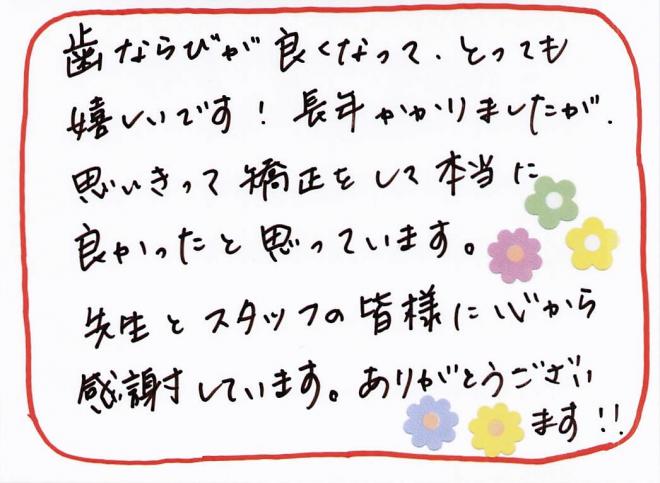 歯ならびが良くなって、とっても
嬉しいです！長年かかりましたが、
思いきって矯正をして本当に
良かったと思っています。
先生とスタッフの皆様に心から
感謝しています。ありがとうござい
ます!!